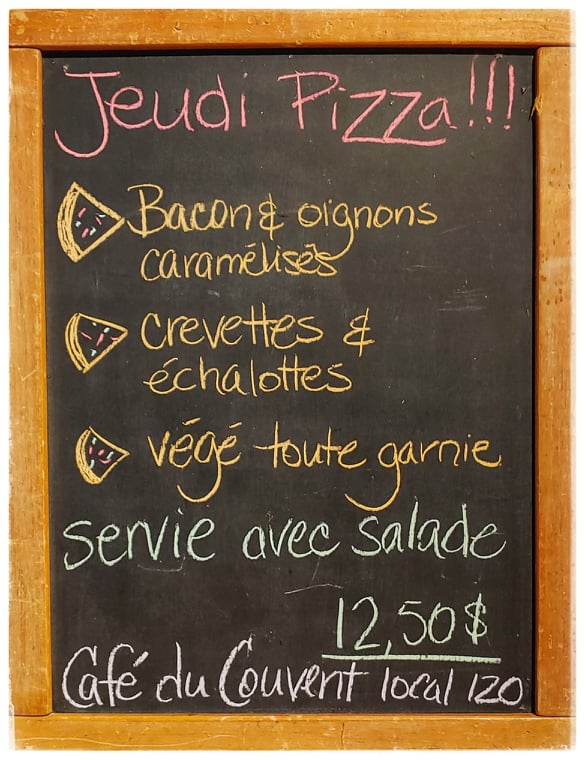 Jeudi Pizza!!!
Bacon & oignons
caramélisés
crevettes &
échalottes
végé toute garnie
servie avec salade
12,50$
Café du Couvent local 120